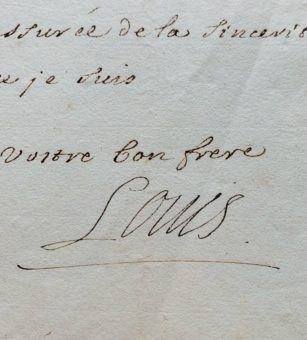 ssurée de la sincerit
e je suis
Vostre bon frere
Louis